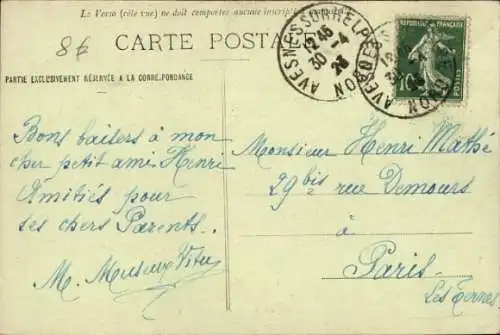 Le Verso (côté vue) ne doit comporter aucune inscription
8€
CARTE POSTALE
AVESNES SUR HELPE
12 45
30 -4
23
NORD
RÉPUBLIQUE FRANÇAISE
10
POSTES
PARTIE EXCLUSIVEMENT RÉSERVÉE A LA CORRESPONDANCE
Bons baisers à mon
cher petit ami Henri
Amitiés pour
ses chers Parents..
M.
Monsieur Henri Mathé
29 bis rue Demours
à
Paris
Les Ternes